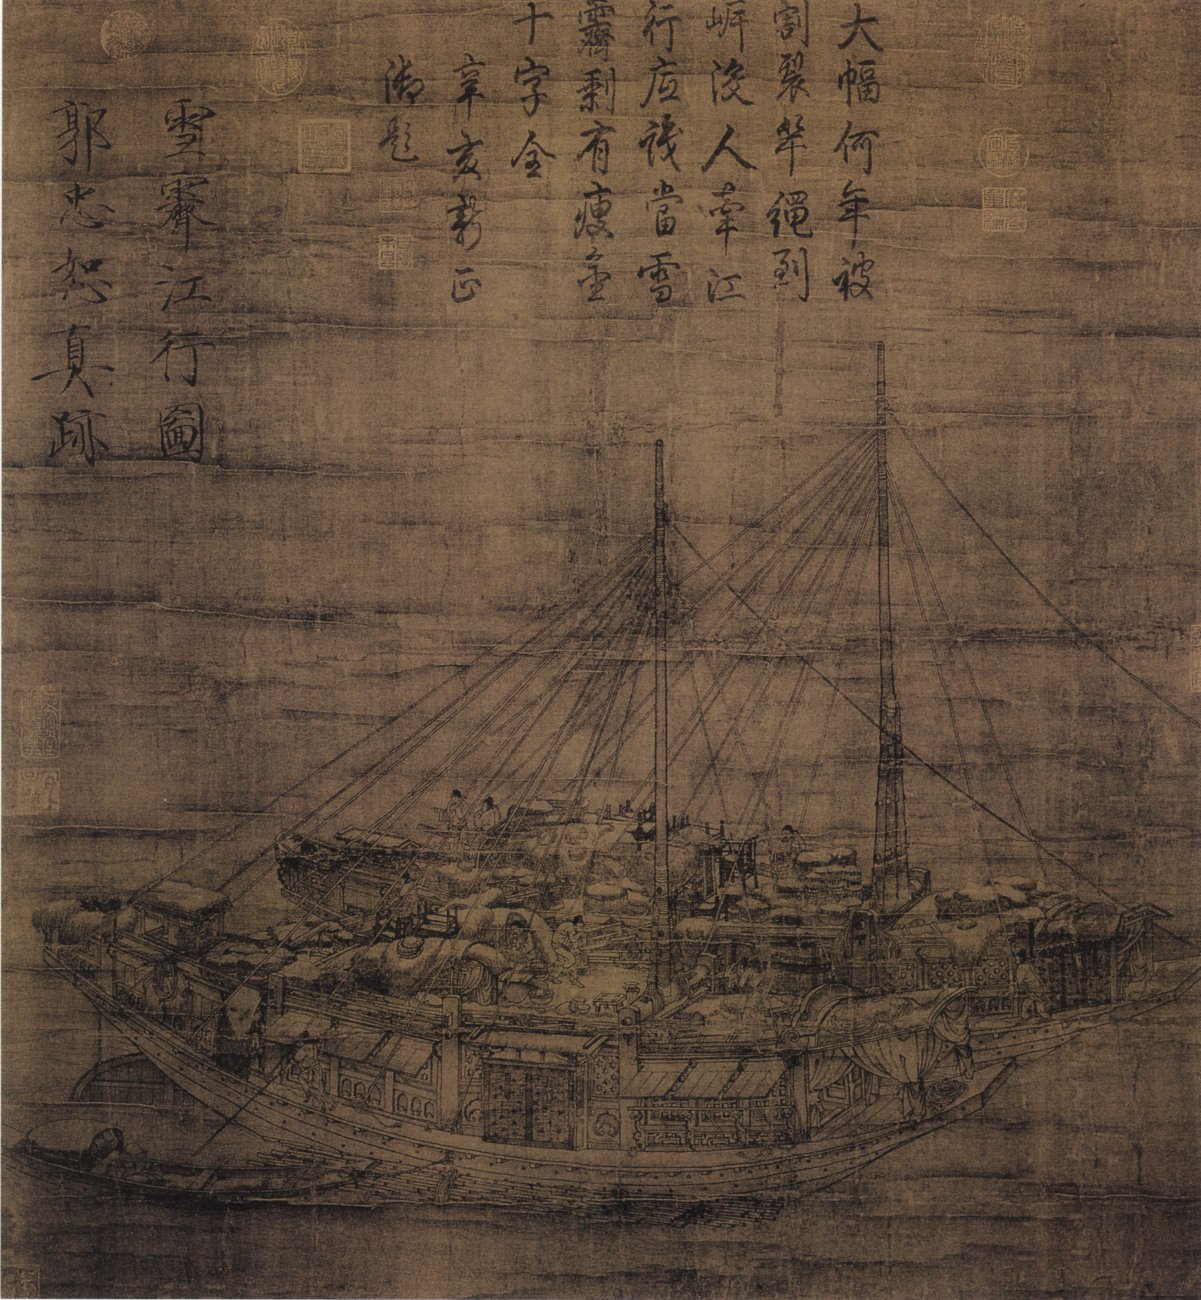 大幅何年被
割裂牽繩到
岸沒人牽江
行應識當雪
霽剩有瘦金
十字全
辛亥新正
御題
雪霽江行圖
郭忠恕真跡